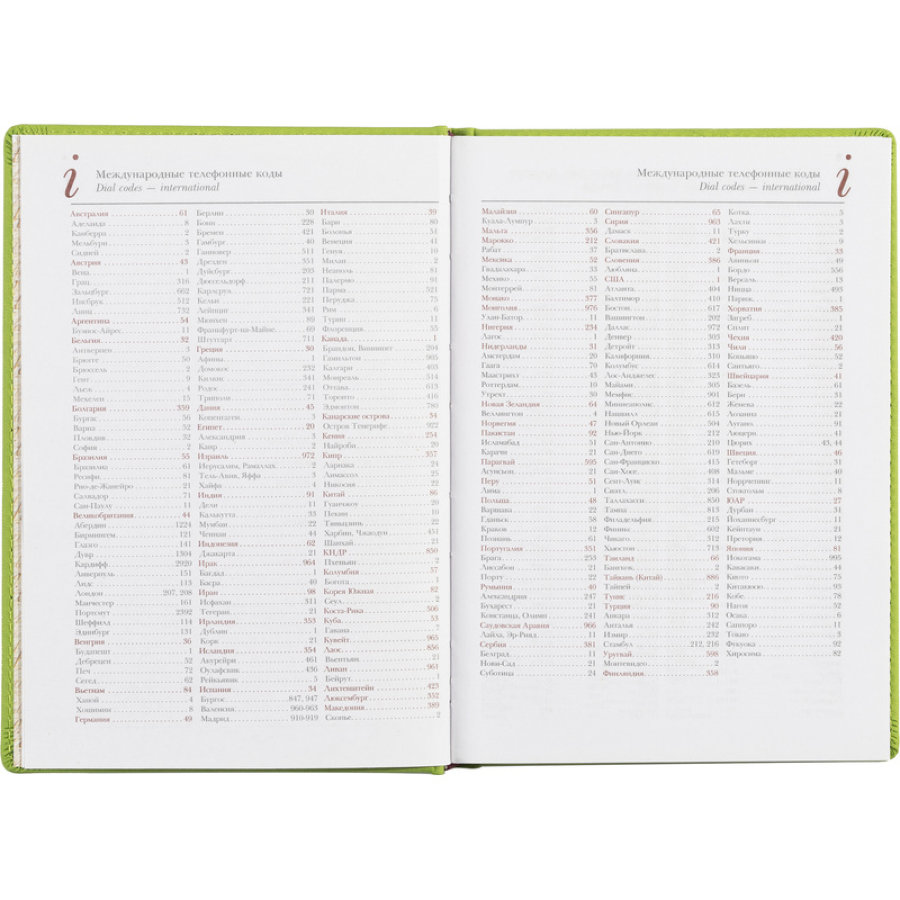 i
Международные телефонные коды
Dial codes — international
Австралия 61
Аделаида 8
Канберра 2
Мельбурн 3
Сидней 2
Австрия 43
Вена 1
Грац 316
Зальцбург 662
Инсбрук 512
Линц 732
Аргентина 54
Буэнос-Айрес 11
Бельгия 32
Антверпен 3
Брюгге 50
Брюссель 2
Гент 9
Льеж 4
Мехелен 15
Болгария 359
Бургас 56
Варна 52
Пловдив 32
София 2
Бразилия 55
Бразилиа 61
Ресифи 81
Рио-де-Жанейро 21
Салвадор 71
Сан-Паулу 11
Великобритания 44
Абердин 1224
Бирмингем 121
Глазго 141
Дувр 1304
Кардифф 2920
Ливерпуль 151
Лидс 113
Лондон 207, 208
Манчестер 161
Портсмут 2392
Шеффилд 114
Эдинбург 131
Венгрия 36
Будапешт 1
Дебрецен 52
Печ 72
Сегед 62
Вьетнам 84
Ханой 4
Хошимин 8
Германия 49
Берлин 30
Бонн 228
Бремен 421
Гамбург 40
Ганновер 511
Дрезден 351
Дуйсбург 203
Дюссельдорф 211
Карлсруэ 721
Кельн 221
Лейпциг 341
Мюнхен 89
Франкфурт-на-Майне 69
Штутгарт 711
Греция 30
Афины 1
Домокос 232
Килкис 341
Родос 41
Триполи 71
Дания 45
Копенгаген 3
Египет 20
Александрия 3
Каир 2
Израиль 972
Иерусалим, Рамаллах 2
Тель-Авив, Яффа 3
Хайфа 4
Индия 91
Дели 11
Калькутта 33
Мумбаи 22
Ченнаи 44
Индонезия 62
Джакарта 21
Ирак 964
Багдад 1
Басра 40
Иран 98
Исфахан 311
Тегеран 21
Ирландия 353
Дублин 1
Корк 21
Исландия 354
Акурейри 461
Оулафсвик 436
Рейкьявик 5
Испания 34
Бургос 847, 947
Валенсия 960-963
Мадрид 910-919
Италия 39
Бари 80
Болонья 51
Венеция 41
Генуя 10
Милан 2
Неаполь 81
Палермо 91
Парма 521
Перуджа 75
Рим 6
Турин 11
Флоренция 55
Канада 1
Брандон, Виннипег 204
Гамильтон 905
Калгари 403
Монреаль 514
Оттава 613
Торонто 416
Эдмонтон 780
Канарские острова 34
Остров Тенерифе 922
Кения 254
Найроби 20
Кипр 357
Ларнака 24
Лимассол 25
Никосия 22
Китай 86
Гуанчжоу 20
Пекин 10
Тяньцзинь 22
Харбин, Чжаодун 451
Шанхай 21
КНДР 850
Пхеньян 2
Колумбия 57
Богота 1
Корея Южная 82
Сеул 2
Коста-Рика 506
Куба 53
Гавана 7
Кувейт 965
Лаос 856
Вьентьян 21
Ливан 961
Бейрут 1
Лихтенштейн 423
Люксембург 352
Македония 389
Скопье 2
Международные телефонные коды
Dial codes — international
i
Малайзия 60
Куала-Лумпур 3
Мальта 356
Марокко 212
Рабат 37
Мексика 52
Гвадалахара 33
Мехико 55
Монтеррей 81
Монако 377
Монголия 976
Улан-Батор 11
Нигерия 234
Лагос 1
Нидерланды 31
Амстердам 20
Гаага 70
Маастрихт 43
Роттердам 10
Утрехт 30
Новая Зеландия 64
Веллингтон 4
Норвегия 47
Пакистан 92
Исламабад 51
Карачи 21
Парагвай 595
Асунсьон 21
Перу 51
Лима 1
Польша 48
Варшава 22
Гданьск 58
Краков 12
Познань 61
Португалия 351
Брага 253
Лиссабон 21
Порту 22
Румыния 40
Александрия 247
Бухарест 21
Констанца, Олимп 241
Саудовская Аравия 966
Лайла, Эр-Рияд 11
Сербия 381
Белград 11
Нови-Сад 21
Суботица 24
Сингапур 65
Сирия 963
Дамаск 11
Словакия 421
Братислава 2
Словения 386
Любляна 1
США 1
Атланта 404
Балтимор 410
Бостон 617
Вашингтон 202
Даллас 972
Денвер 303
Детройт 313
Калифорния 310
Колумбус 614
Лос-Анджелес 323
Майами 305
Мемфис 901
Миннеаполис 612
Нашвилл 615
Новый Орлеан 504
Нью-Йорк 212
Сан-Антонио 210
Сан-Диего 619
Сан-Франциско 415
Сан-Хосе 408
Сент-Луис 314
Сиэтл 206
Таллахасси 850
Тампа 813
Филадельфия 215
Финикс 602
Чикаго 312
Хьюстон 713
Таиланд 66
Бангкок 2
Тайвань (Китай) 886
Тайпей 2
Тунис 216
Турция 90
Анкара 312
Анталья 242
Измир 232
Стамбул 212, 216
Уругвай 598
Монтевидео 2
Финляндия 358
Котка 5
Лахти 3
Турку 2
Хельсинки 9
Франция 33
Авиньон 49
Бордо 556
Версаль 13
Ницца 493
Париж 1
Хорватия 385
Загреб 1
Сплит 21
Чехия 420
Чили 56
Копьяпо 52
Сантьяго 2
Швейцария 41
Базель 61
Берн 31
Женева 22
Лозанна 21
Лугано 91
Люцерн 41
Цюрих 43, 44
Швеция 46
Гетеборг 31
Мальме 40
Норрчепинг 11
Стокгольм 8
ЮАР 27
Дурбан 31
Йоханнесбург 11
Кейптаун 21
Претория 12
Япония 81
Иокогама 995
Кавасаки 44
Киото 75
Китакюсю 93
Кобе 78
Нагоя 52
Осака 6
Саппоро 11
Токио 3
Фукуока 92
Хиросима 82